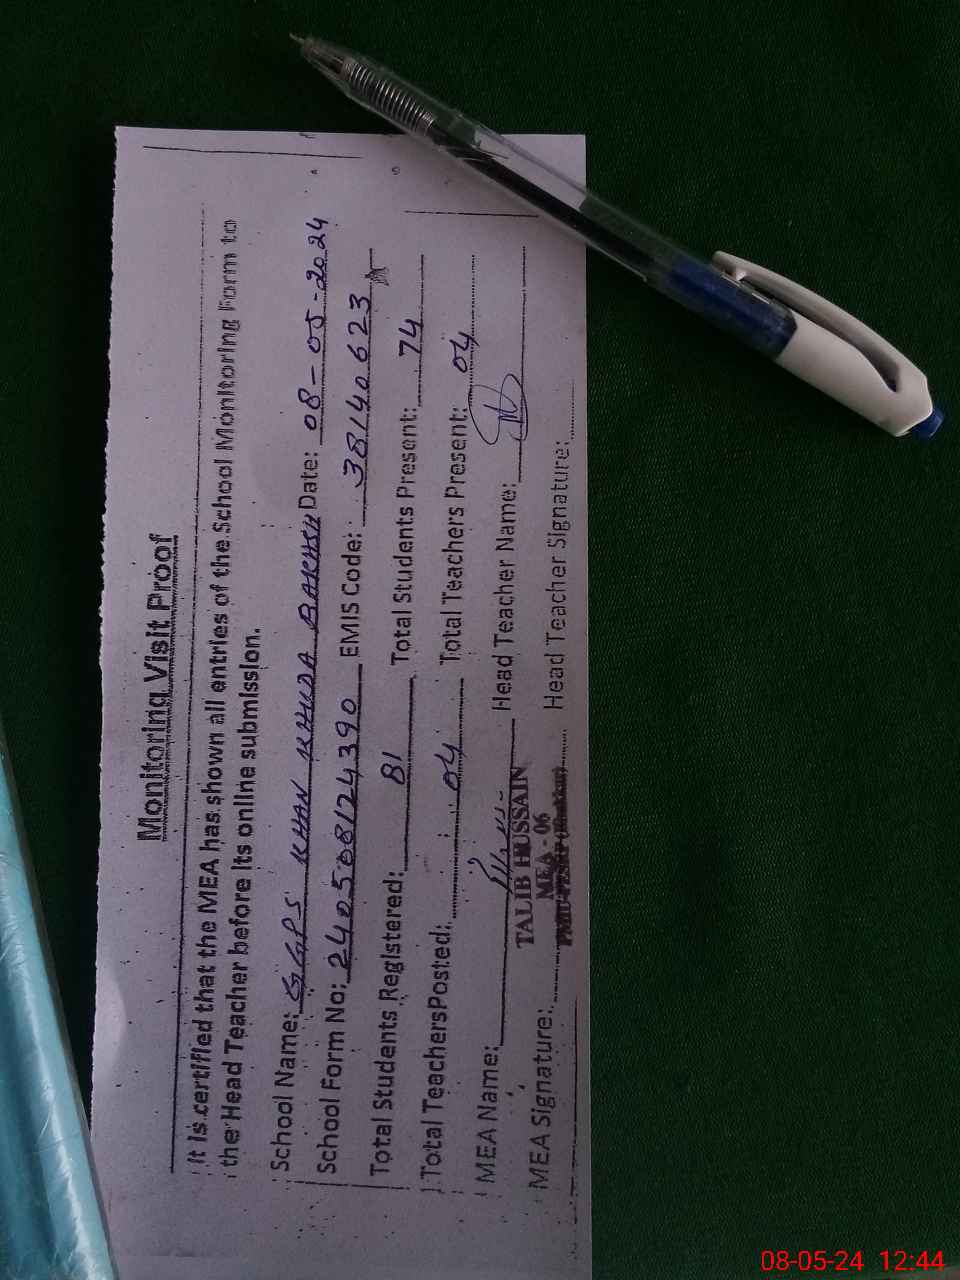 Monitoring Visit Proof
It is certified that the MEA has shown all entries of the School Monitoring Form to
the Head Teacher before its online submission.
School Name: GGPS KHAN KHUDA BAKHSH Date: 08-05-2024
School Form No: 240508124390 EMIS Code: 38140623
Total Students Registered: 81 Total Students Present: 74
Total TeachersPosted: 04 Total Teachers Present: 04
MEA Name: Head Teacher Name:
TALIB HUSSAIN
MEA - 06
MEA Signature: Head Teacher Signature:
08-05-24 12:44